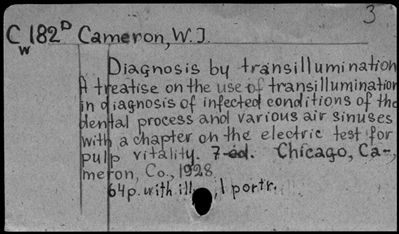 3
C 182 D Cameron, W. J.
w
Diagnosis by transillumination
A treatise on the use of transillumination
in diagnosis of infected conditions of the
dental process and various air sinuses
with a chapter on the electric test for
pulp vitality. 7-ed. Chicago, Ca-
meron, Co., 1928
64 p. with ill., 1 portr.